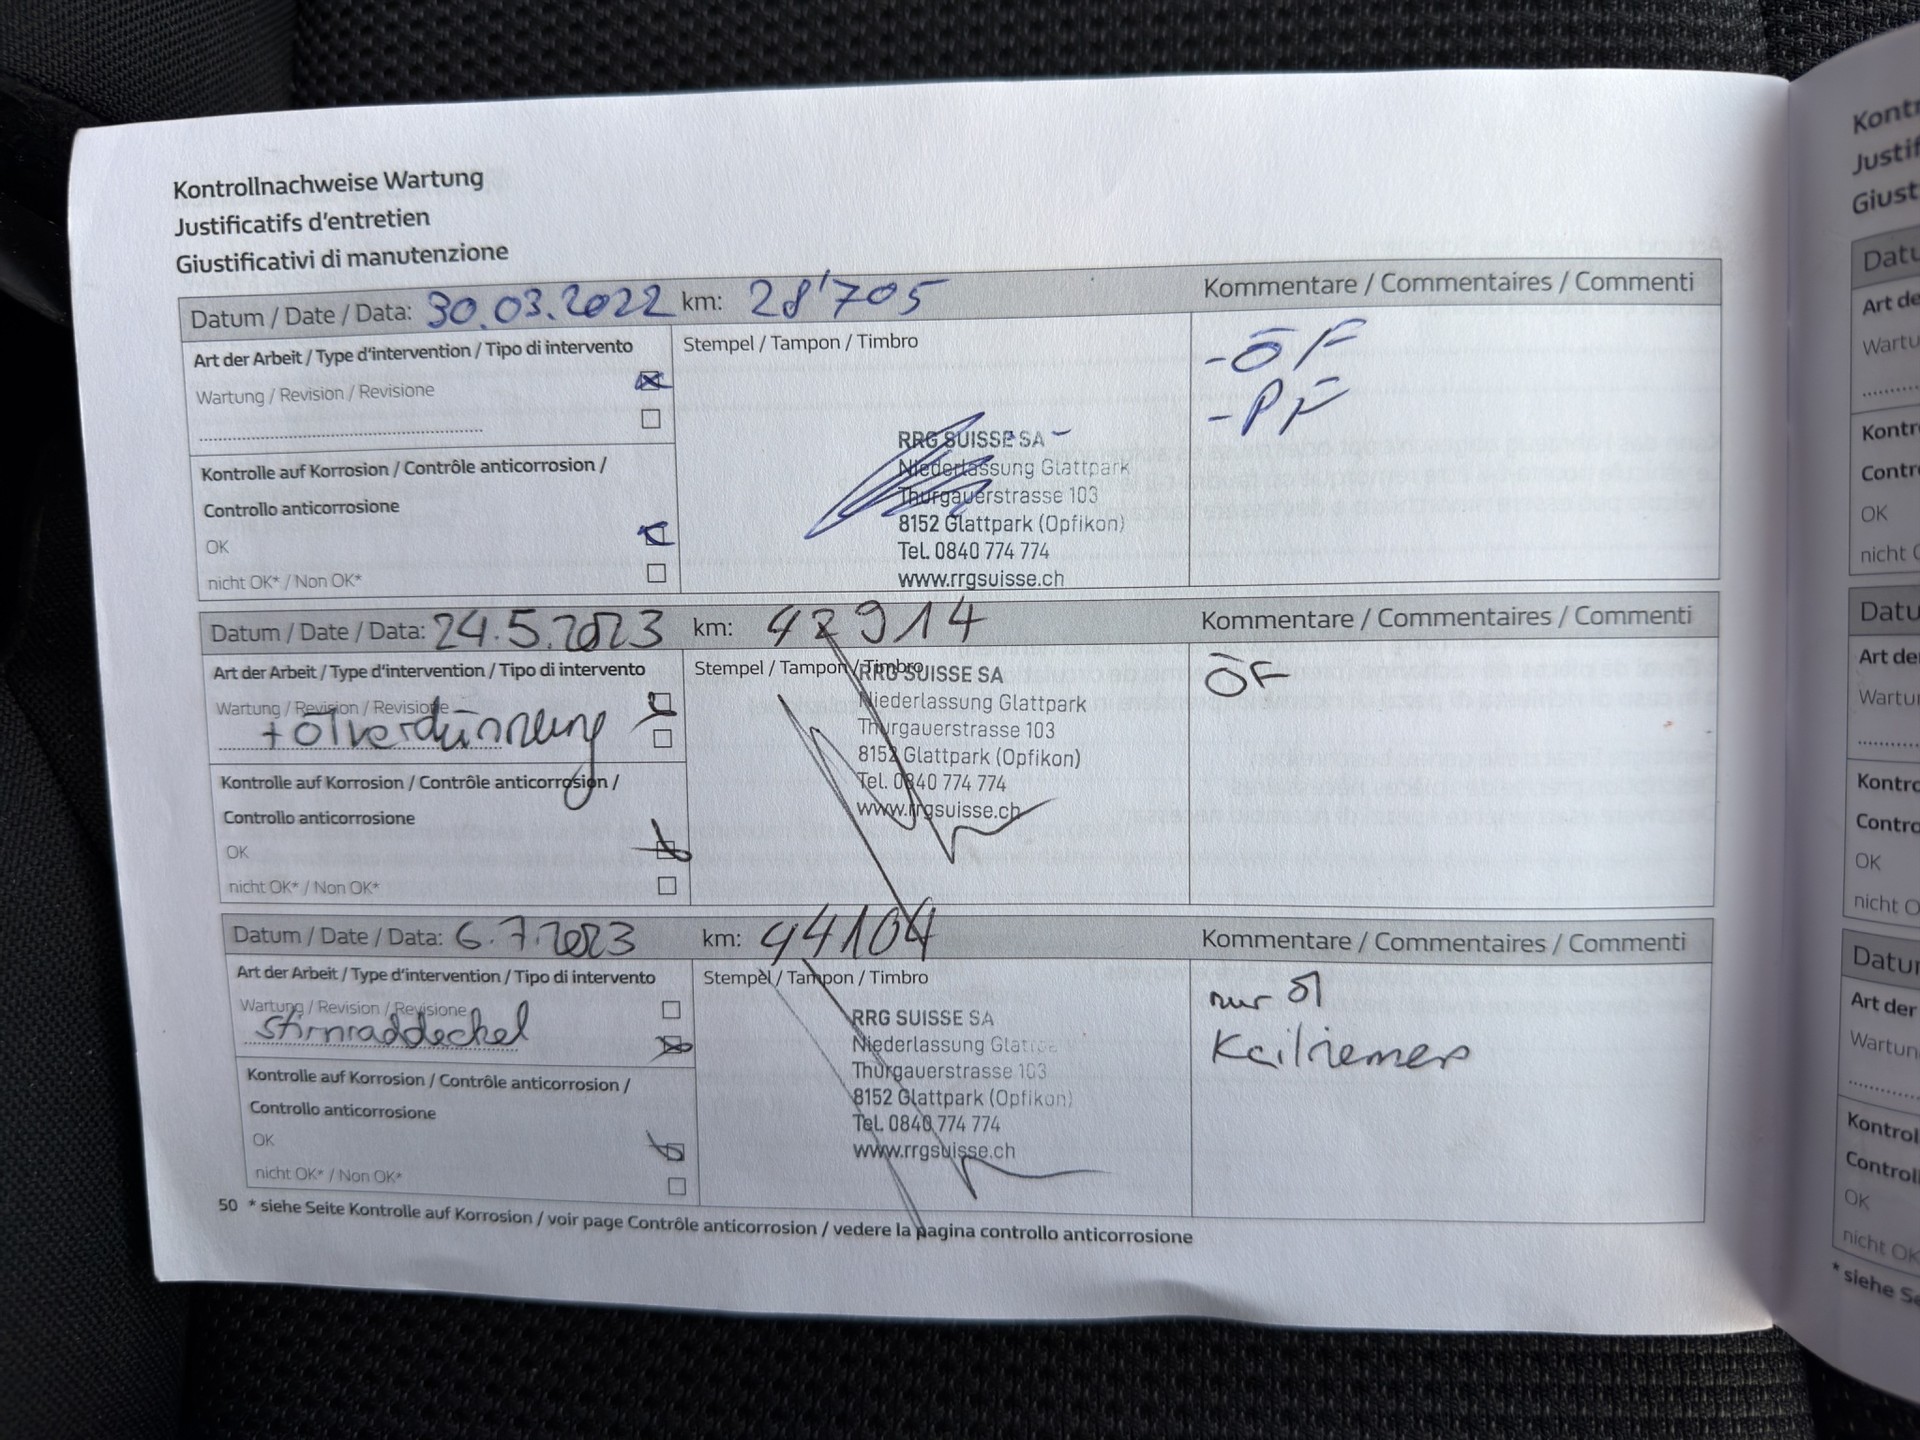 Kontrollnachweise Wartung
Justificatifs d'entretien
Giustificativi di manutenzione
Datum / Date / Data: 30.03.2022 km: 28'705 Kommentare / Commentaires / Commenti
Art der Arbeit / Type d'intervention / Tipo di intervento
Stempel / Tampon / Timbro
-ÖF
-PF
Wartung / Revision / Revisione
Kontrolle auf Korrosion / Contrôle anticorrosion /
Controllo anticorrosione
OK
nicht OK* / Non OK*
RRG SUISSE SA
Niederlassung Glattpark
Thurgauerstrasse 103
8152 Glattpark (Opfikon)
Tel. 0840 774 774
www.rrgsuisse.ch
Datum / Date / Data: 24.5.2023 km: 42914 Kommentare / Commentaires / Commenti
Art der Arbeit / Type d'intervention / Tipo di intervento
Stempel / Tampon / Timbro
ÖF
Wartung / Revision / Revisione
+ Ölverdünnung
Kontrolle auf Korrosion / Contrôle anticorrosion /
Controllo anticorrosione
OK
nicht OK* / Non OK*
RRG SUISSE SA
Niederlassung Glattpark
Thurgauerstrasse 103
8152 Glattpark (Opfikon)
Tel. 0840 774 774
www.rrgsuisse.ch
Datum / Date / Data: 6.7.2023 km: 44104 Kommentare / Commentaires / Commenti
Art der Arbeit / Type d'intervention / Tipo di intervento
Stempel / Tampon / Timbro
nur Öl
Keilriemen
Wartung / Revision / Revisione
Stirnraddeckel
Kontrolle auf Korrosion / Contrôle anticorrosion /
Controllo anticorrosione
OK
nicht OK* / Non OK*
RRG SUISSE SA
Niederlassung Glattpark
Thurgauerstrasse 103
8152 Glattpark (Opfikon)
Tel. 0840 774 774
www.rrgsuisse.ch
50 * siehe Seite Kontrolle auf Korrosion / voir page Contrôle anticorrosion / vedere la pagina controllo anticorrosione
OK
nicht
OK
nicht O
OK
nicht OK
* siehe Se